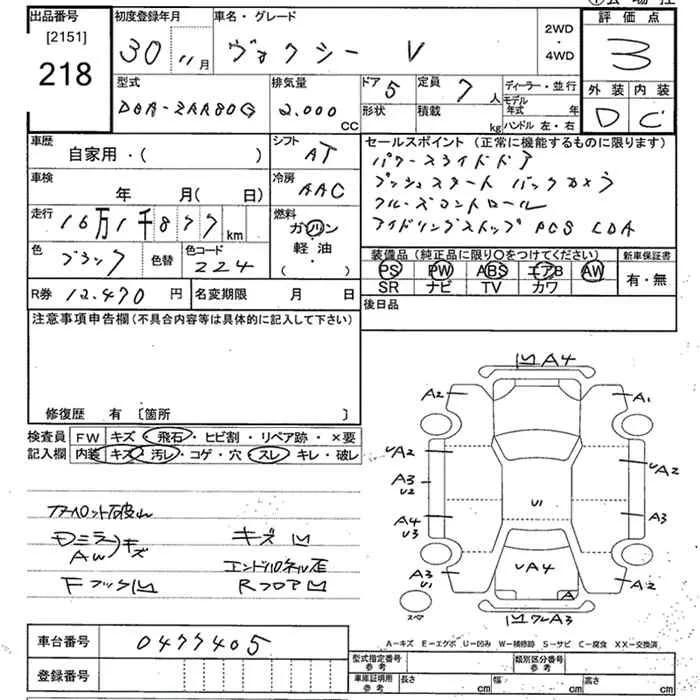 出品番号 初度登録年月 車名・グレード 評価点
[2151]
218 30 11月 ヴォクシー V 2WD・4WD 3
型式 排気量 ドア 5 定員 7人 ディーラー・並行 外装 内装
DBA-ZRR80G 2.000 CC 形状 積載 kg モデル年式 年 ハンドル 左・右 D C
車歴 自家用・( ) シフト AT セールスポイント(正常に機能するものに限ります)
パワースライドドア
車検 年 月( 日) 冷房 AAC プッシュスタート バックカメラ
クルーズコントロール
走行 16万1千877km 燃料 ガソリン 軽油・( ) アイドリングストップ PCS LDA
色 ブラック 色替 色コード 224 装備品(純正品に限り○をつけてください) 新車保証書
PS PW ABS エアB AW 有・無
SR ナビ TV カワ
R券 12.470円 名変期限 月 日 後日品
注意事項申告欄(不具合内容等は具体的に記入して下さい)
修復歴 有 [箇所 ]
検査員 FW キズ・飛石・ヒビ割・リペア跡・×要
記入欄 内装 キズ・汚レ・コゲ・穴・スレ・キレ・破レ
凹A4
A2 A1
UA2 UA2
A3 U2 U1
A4 U3 A3
UA4
A3 U1 A A2
スペア 凹ワレA3
Dミラーキズ キズ凹
AW エンドパネル歪
Fフック凹 Rフロア凹
A-キズ E-エクボ U-凹み W-補修跡 S-サビ C-腐食 XX-交換済
車台番号 0477405
登録番号
型式指定番号 参考 類別区分番号 参考
車庫証明用 参考 長さ cm 幅 cm 高さ cm